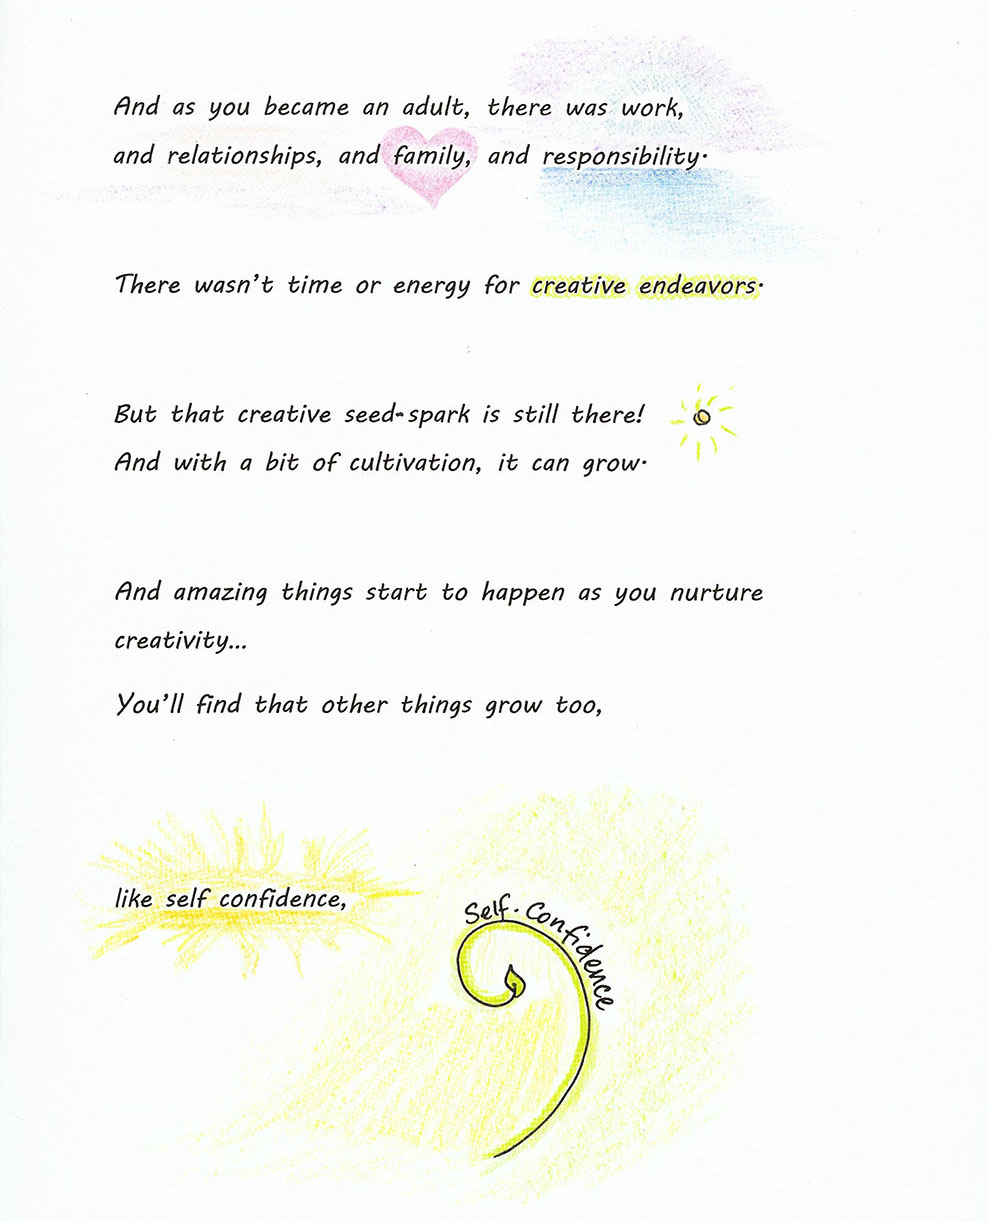 And as you became an adult, there was work,
and relationships, and family, and responsibility.
There wasn't time or energy for creative endeavors.
But that creative seed-spark is still there!
And with a bit of cultivation, it can grow.
And amazing things start to happen as you nurture
creativity...
You'll find that other things grow too,
like self confidence,
Self-Confidence